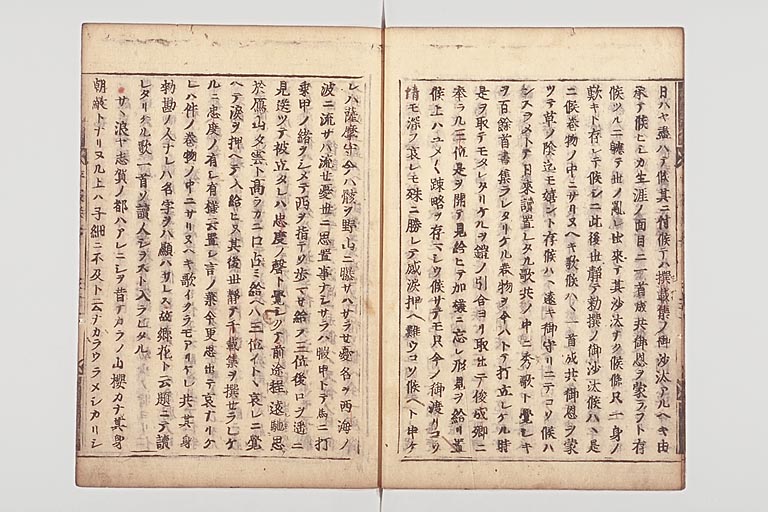 日ハヤ盡ハテ候其ニ付候テハ撰載集ノ御沙汰アルヘキ由
承テ候ヒシカ生涯ノ面目ニ一首成共御恩ヲ蒙ラフト存
候ツルニ轉テ世ノ亂レ出来テ其沙汰ナク候條只一身ノ
歎キト存シテ候シニ此後世靜テ勅撰ノ御沙汰候ハヽ是
ニ候巻物ノ中ニサリヌヘキ歌候ハヽ一首成共御恩ヲ蒙
ツテ草ノ陰迄モ嬉シト存候ハヽ遠キ御守リニテコソ候ハ
ンスラメトテ日来讀置レタル歌共ノ中ニ秀歌ト覺シキ
ヲ百餘首書集ラレタリケル巻物ヲ今ハトテ打立レケル時
是ヲ取テモタレタリケルヲ鎧ノ引合ヨリ取出シテ俊成卿ニ
奉ラル三位是ヲ開テ見給ヒテ加樣ニ忘レ形見ヲ給リ置
候上ハユメ〳〵疎略ヲ存マシウ候サテモ只今ノ御渡リコソ
情モ深フ哀レモ殊ニ勝レテ感涙押ヘ難ウコソ候ヘト申ケ
レハ薩摩守今ハ骸ヲ野山ニ曝サハサラせ憂名ヲ西海ノ
波ニ流サハ流せ憂世ニ思置事ナシサラハ暇申トテ馬ニ打
乗甲ノ緒ヲシメテ西ヲ指テソ歩マせ給フ三位後ロヲ遥ニ
見送ツテ被立タレハ忠度ノ聲ト覺シクテ前途程遠馳思
於雁山夕雲ト高ラカニ口占ミ給ヘハ三位イトヽ哀レニ覺
ヘテ涙ヲ押ヘテ入給ヒヌ其後世靜テ千載集ヲ撰せラレケ
ルニ忠度ノ有シ有樣云置シ言ノ葉今更思出テ哀ナリケ
レハ件ノ巻物ノ中ニサリヌヘキ歌イクラモアリケレ共其身
勅勘ノ人ナレハ名字ヲハ顯ハサレス故郷花ト云題ニテ讀
レタリケル歌一首ソ讀人シラスト入ラレタル
サヽ浪ヤ志賀ノ都ハアレニシヲ昔ナカラノ山櫻カナ其身
朝敵トナリヌル上ハ子細ニ不及ト云ナカラウラメシカリシ